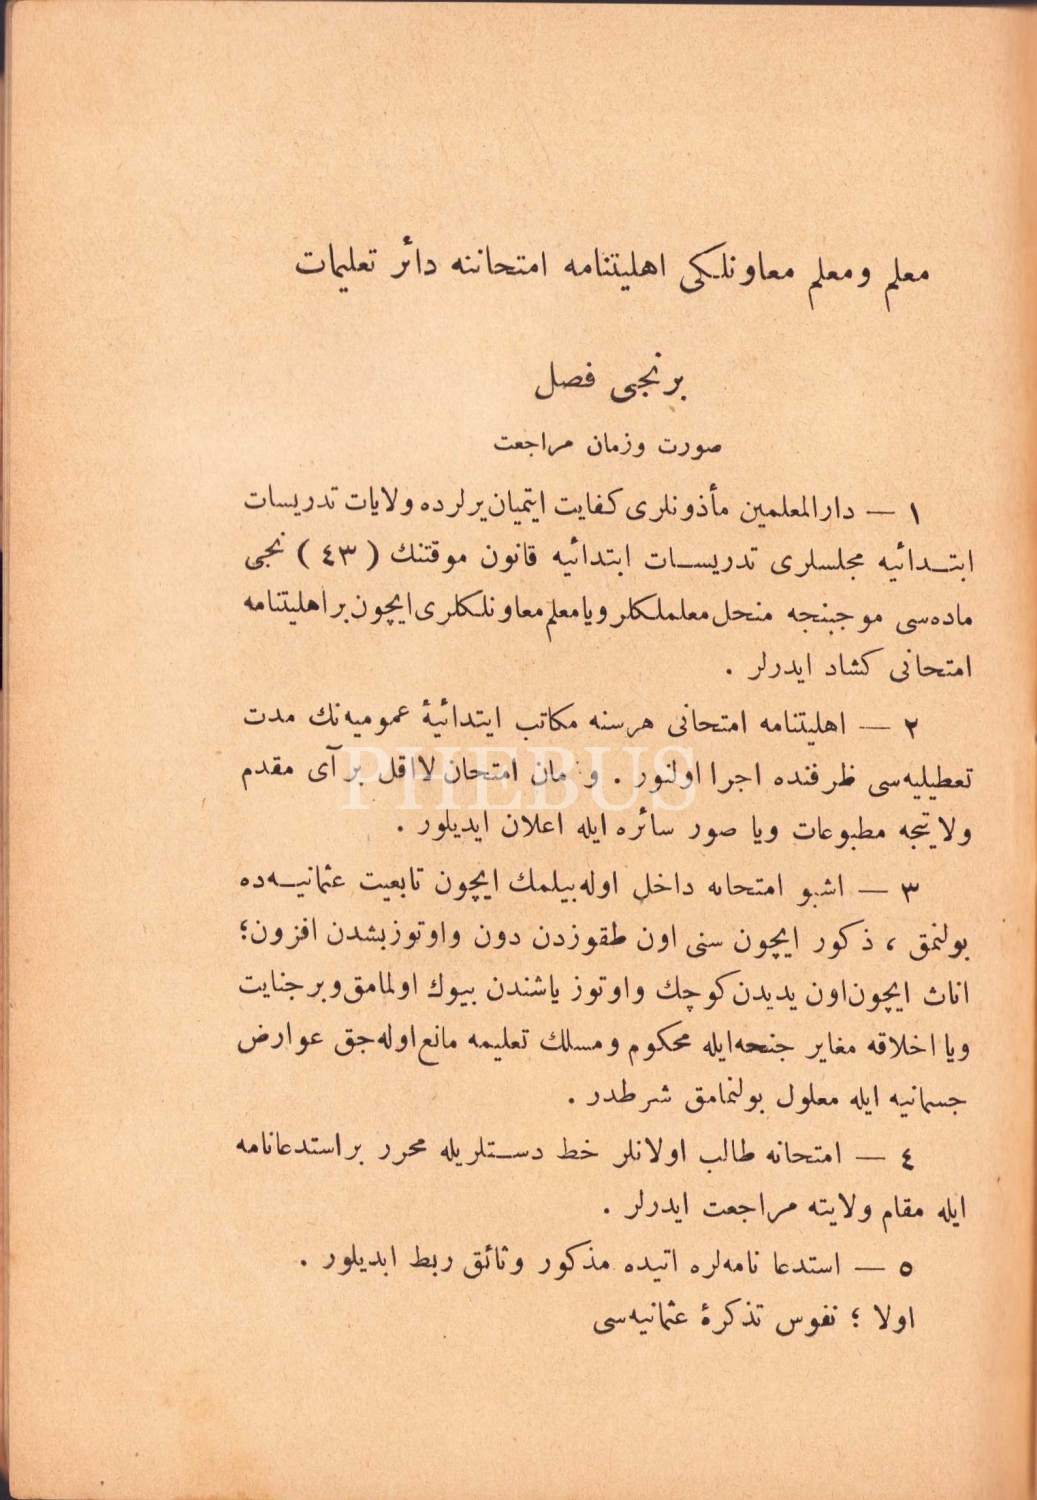 معلم ومعلم معاونلكی اهلیتنامه امتحاننه دائر تعلیمات
برنجی فصل
صورت وزمان مراجعت
١ — دارالمعلمین مأذونلری كفایت ایتمیان یرلرده ولایات تدریسات
ابتـدائیه مجلسلری تدریسـات ابتدائیه قانون موقتنك ( ٤٣ ) نجی
ماده‌سی موجبنجه منحل معلملكلر ویا معلم معاونلكلری ایچون بر اهلیتنامه
امتحانی كشاد ایدرلر .
٢ — اهلیتنامه امتحانی هرسنه مكاتب ایتدائیۀ عمومیه‌نك مدت
تعطیلیه‌سی ظرفنده اجرا اولنور . و مان امتحان لااقل بر آی مقدم
ولایتجه مطبوعات ویا صور سائره ایله اعلان ایدیلور .
٣ — اشبو امتحانه داخل اوله‌بیلمك ایچون تابعیت عثمانیـه‌ده
بولنمق ، ذكور ایچون سنی اون طقوزدن دون واوتوزبشدن افزون؛
اناث ایچون اون یدیدن كوچك واوتوز یاشندن بیوك اولمامق وبر جنایت
ویا اخلاقه مغایر جنحه‌ایله محكوم ومسلك تعلیمه مانع اوله‌جق عوارض
جسمانیه ایله معلول بولنمامق شرطدر .
٤ — امتحانه طالب اولانلر خط دسـتلریله محرر براستدعانامه
ایله مقام ولایته مراجعت ایدرلر .
٥ — استدعا نامه‌لره اتیده مذكور وثائق ربط ابدیلور .
اولا ؛ نفوس تذكرۀ عثمانیه‌سی
PHEBUS